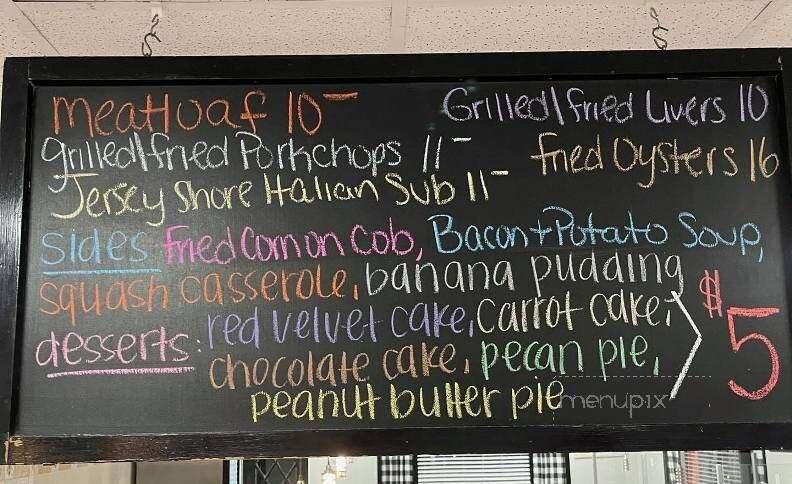 Meatloaf 10-
Grilled/fried Livers 10
grilled/fried Porkchops 11-
fried Oysters 16
Jersey Shore Italian Sub 11-
Sides: Fried Corn on Cob, Bacon + Potato Soup,
squash casserole, banana pudding
desserts: red velvet cake, carrot cake,
$5
chocolate cake, pecan pie,
peanut butter pie
menupix